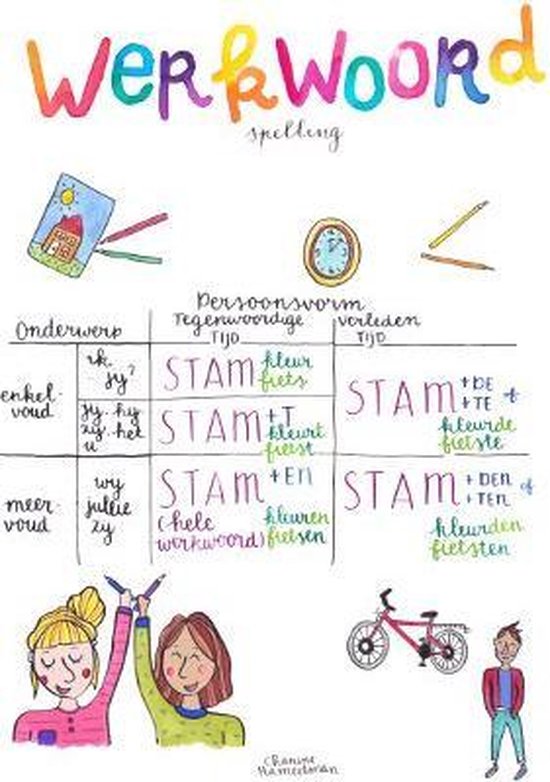 Werkwoord
spelling
Persoonsvorm
Onderwerp
Tegenwoordige
TIJD
verleden
TIJD
enkel-
voud
ik
jy?
STAM
kleur
fiets
STAM
+DE
+TE
kleurde
fietste
jy. hy
zy. het
u
STAM
+T
kleurt
fietst
meer-
voud
wy
jullie
zy
STAM
+EN
(hele
werkwoord)
kleuren
fietsen
STAM
+DEN
+TEN
of
kleurden
fietsten